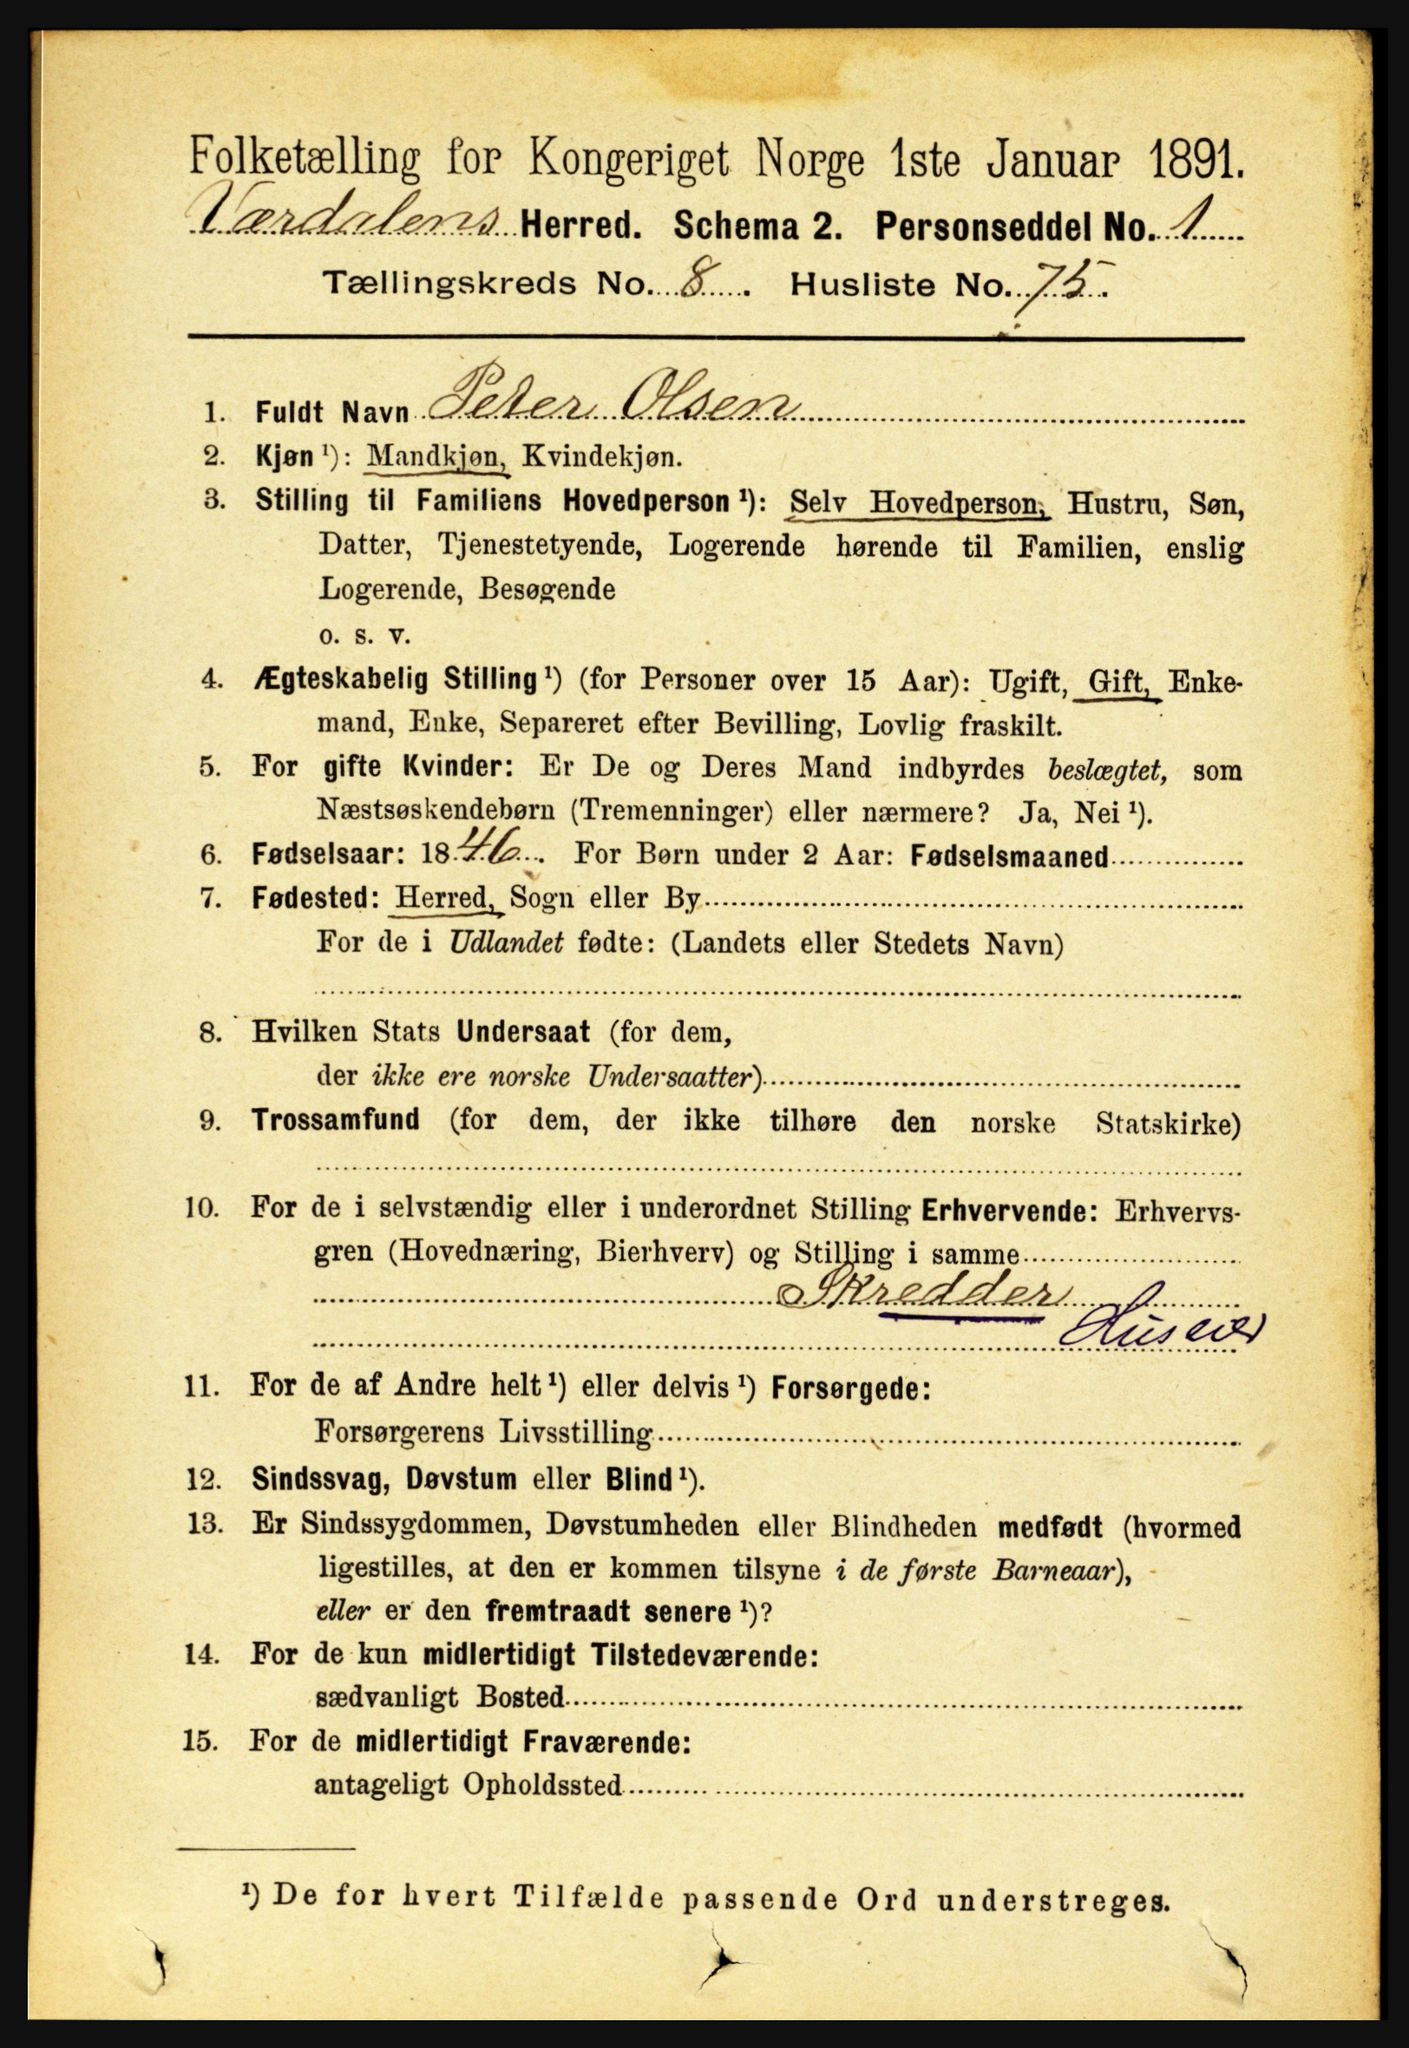 Folketælling for Kongeriget Norge 1ste Januar 1891.
Værdalens Herred. Schema 2. Personseddel No. 1
Tællingskreds No. 8. Husliste No. 75.
1. Fuldt Navn Peter Olsen
2. Kjøn ¹): Mandkjøn, Kvindekjøn.
3. Stilling til Familiens Hovedperson ¹): Selv Hovedperson, Hustru, Søn,
Datter, Tjenestetyende, Logerende hørende til Familien, enslig
Logerende, Besøgende
o. s. v.
4. Ægteskabelig Stilling ¹) (for Personer over 15 Aar): Ugift, Gift, Enke-
mand, Enke, Separeret efter Bevilling, Lovlig fraskilt.
5. For gifte Kvinder: Er De og Deres Mand indbyrdes beslægtet, som
Næstsøskendebørn (Tremenninger) eller nærmere? Ja, Nei ¹).
6. Fødselsaar: 1846. For Børn under 2 Aar: Fødselsmaaned
7. Fødested: Herred, Sogn eller By
For de i Udlandet fødte: (Landets eller Stedets Navn)
8. Hvilken Stats Undersaat (for dem,
der ikke ere norske Undersaatter)
9. Trossamfund (for dem, der ikke tilhøre den norske Statskirke)
10. For de i selvstændig eller i underordnet Stilling Erhvervende: Erhvervs-
gren (Hovednæring, Bierhverv) og Stilling i samme
Skredder
Huseier
11. For de af Andre helt ¹) eller delvis ¹) Forsørgede:
Forsørgerens Livsstilling
12. Sindssvag, Døvstum eller Blind ¹).
13. Er Sindssygdommen, Døvstumheden eller Blindheden medfødt (hvormed
ligestilles, at den er kommen tilsyne i de første Barneaar),
eller er den fremtraadt senere ¹)?
14. For de kun midlertidigt Tilstedeværende:
sædvanligt Bosted
15. For de midlertidigt Fraværende:
antageligt Opholdssted
¹) De for hvert Tilfælde passende Ord understreges.